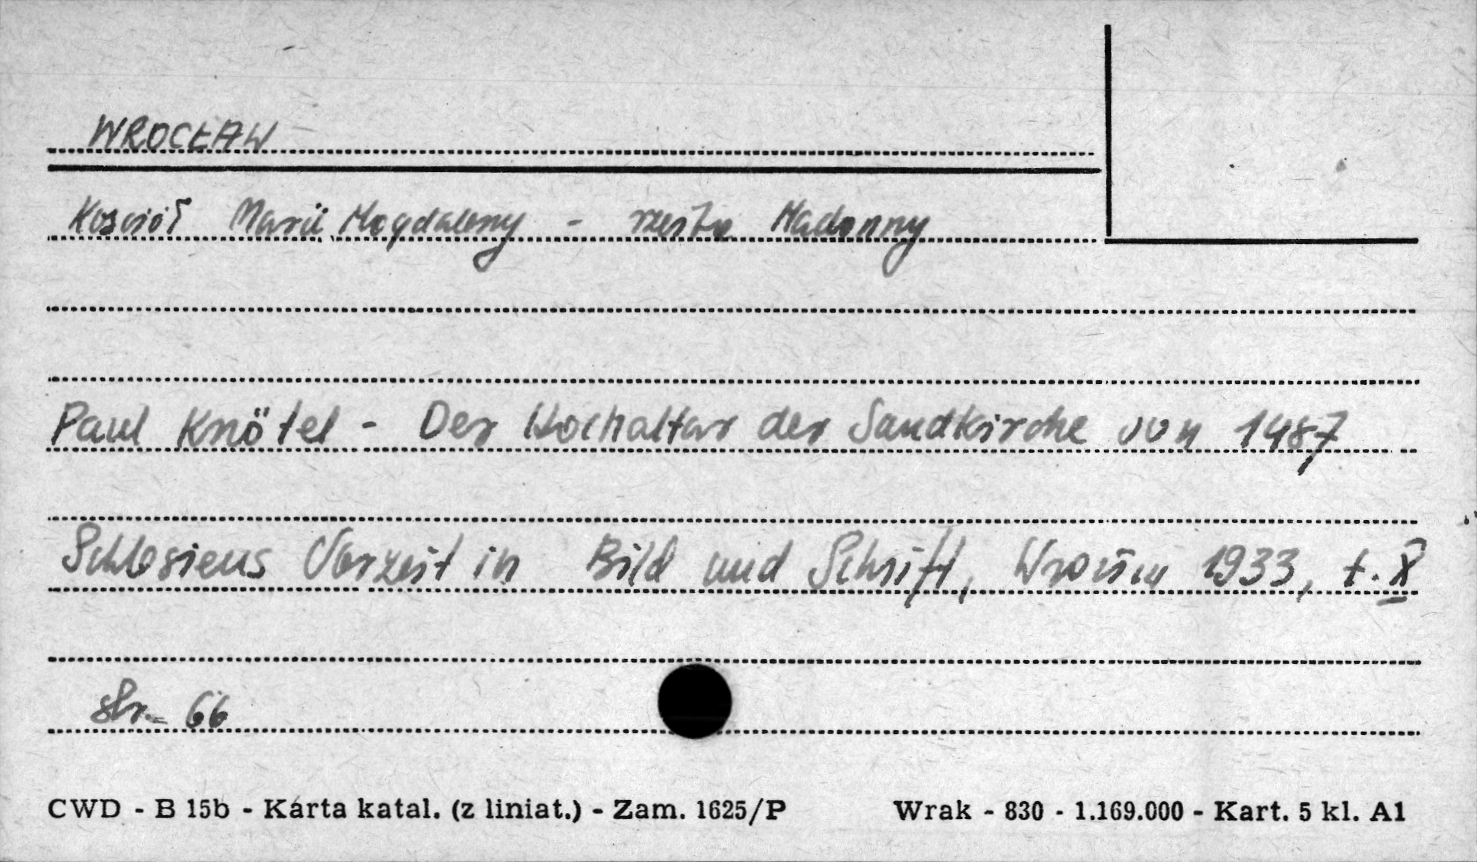 WROCŁAW
Kościół Marii Magdaleny - rzeźba Madonny
Paul Knötel - Der Hochaltar der Sandkirche von 1487
Schlesiens Vorzeit in Bild und Schrift, 1933, t. X
str. 66
CWD - B 15b - Karta katal. (z liniat.) - Zam. 1625/P Wrak - 830 - 1.169.000 - Kart. 5 kl. A1